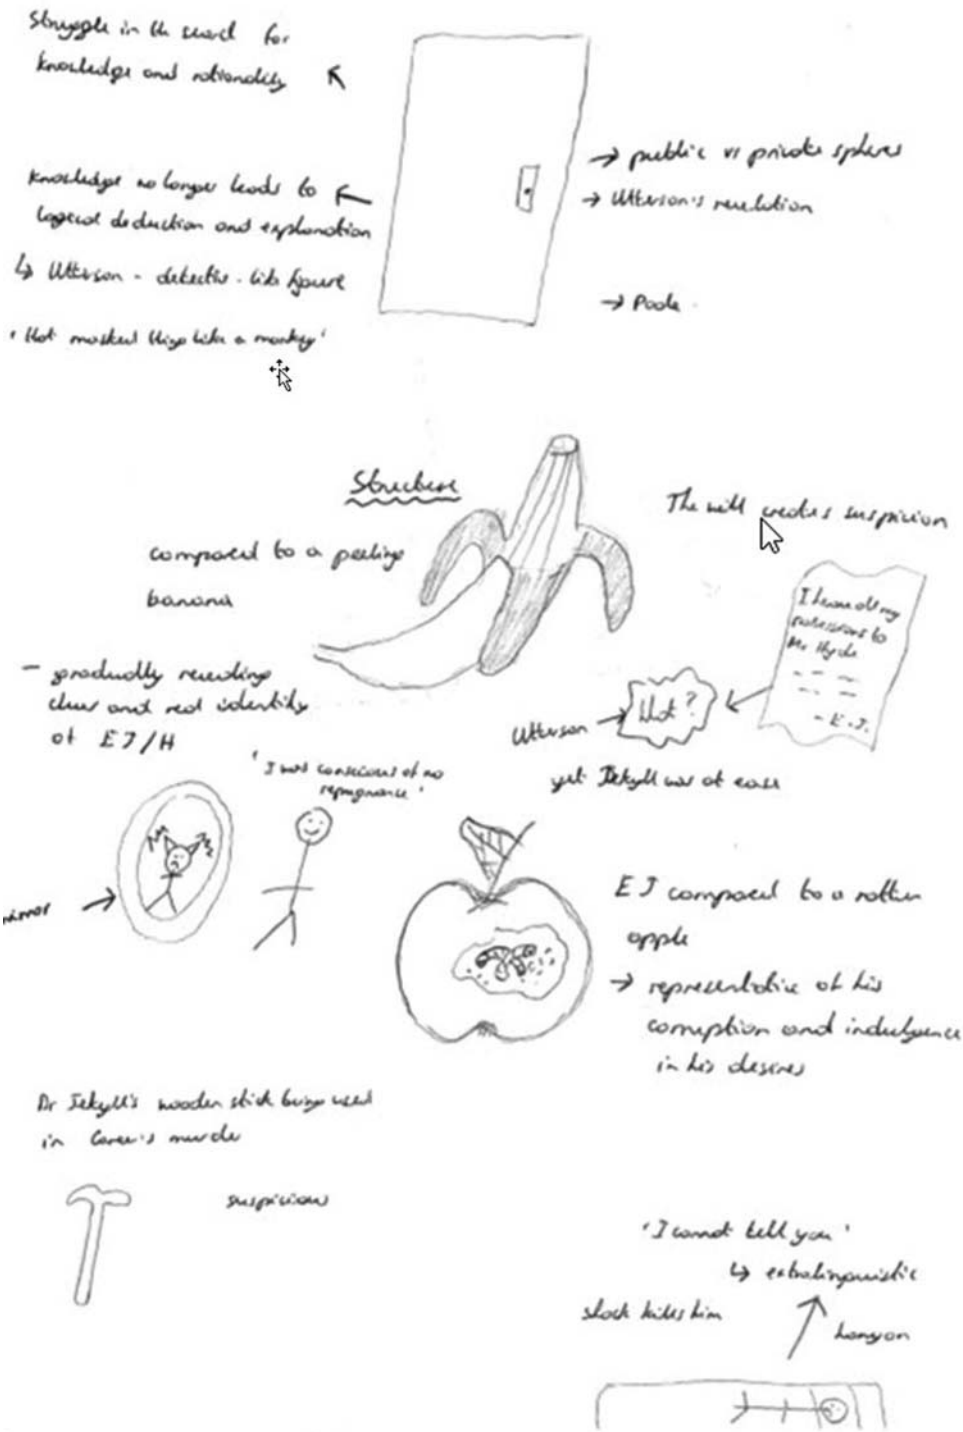 Struggle in the search for
knowledge and rationality
Knowledge no longer leads to
logical deduction and explanation
↳ Utterson - detective-like figure
'that masked thing like a monkey'
→ public vs private spheres
→ Utterson's revelation
→ Poole
Structure
compared to a peeling
banana
- gradually revealing
clues and real identity
of EJ/H
The will creates suspicion
I leave all my
possessions to
Mr Hyde
- E.J.
What?
Utterson →
yet Jekyll was at ease
'I was conscious of no
repugnance'
mirror
EJ compared to a rotten
apple
→ representative of his
corruption and indulgence
in his desires
Dr Jekyll's wooden stick being used
in Carew's murder
suspicious
'I cannot tell you'
↳ extralinguistic
shock kills him
Lanyon